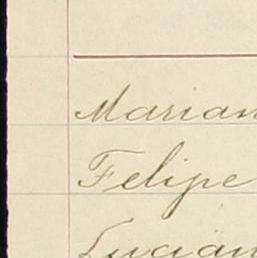 Marian
Felipe
Lucian